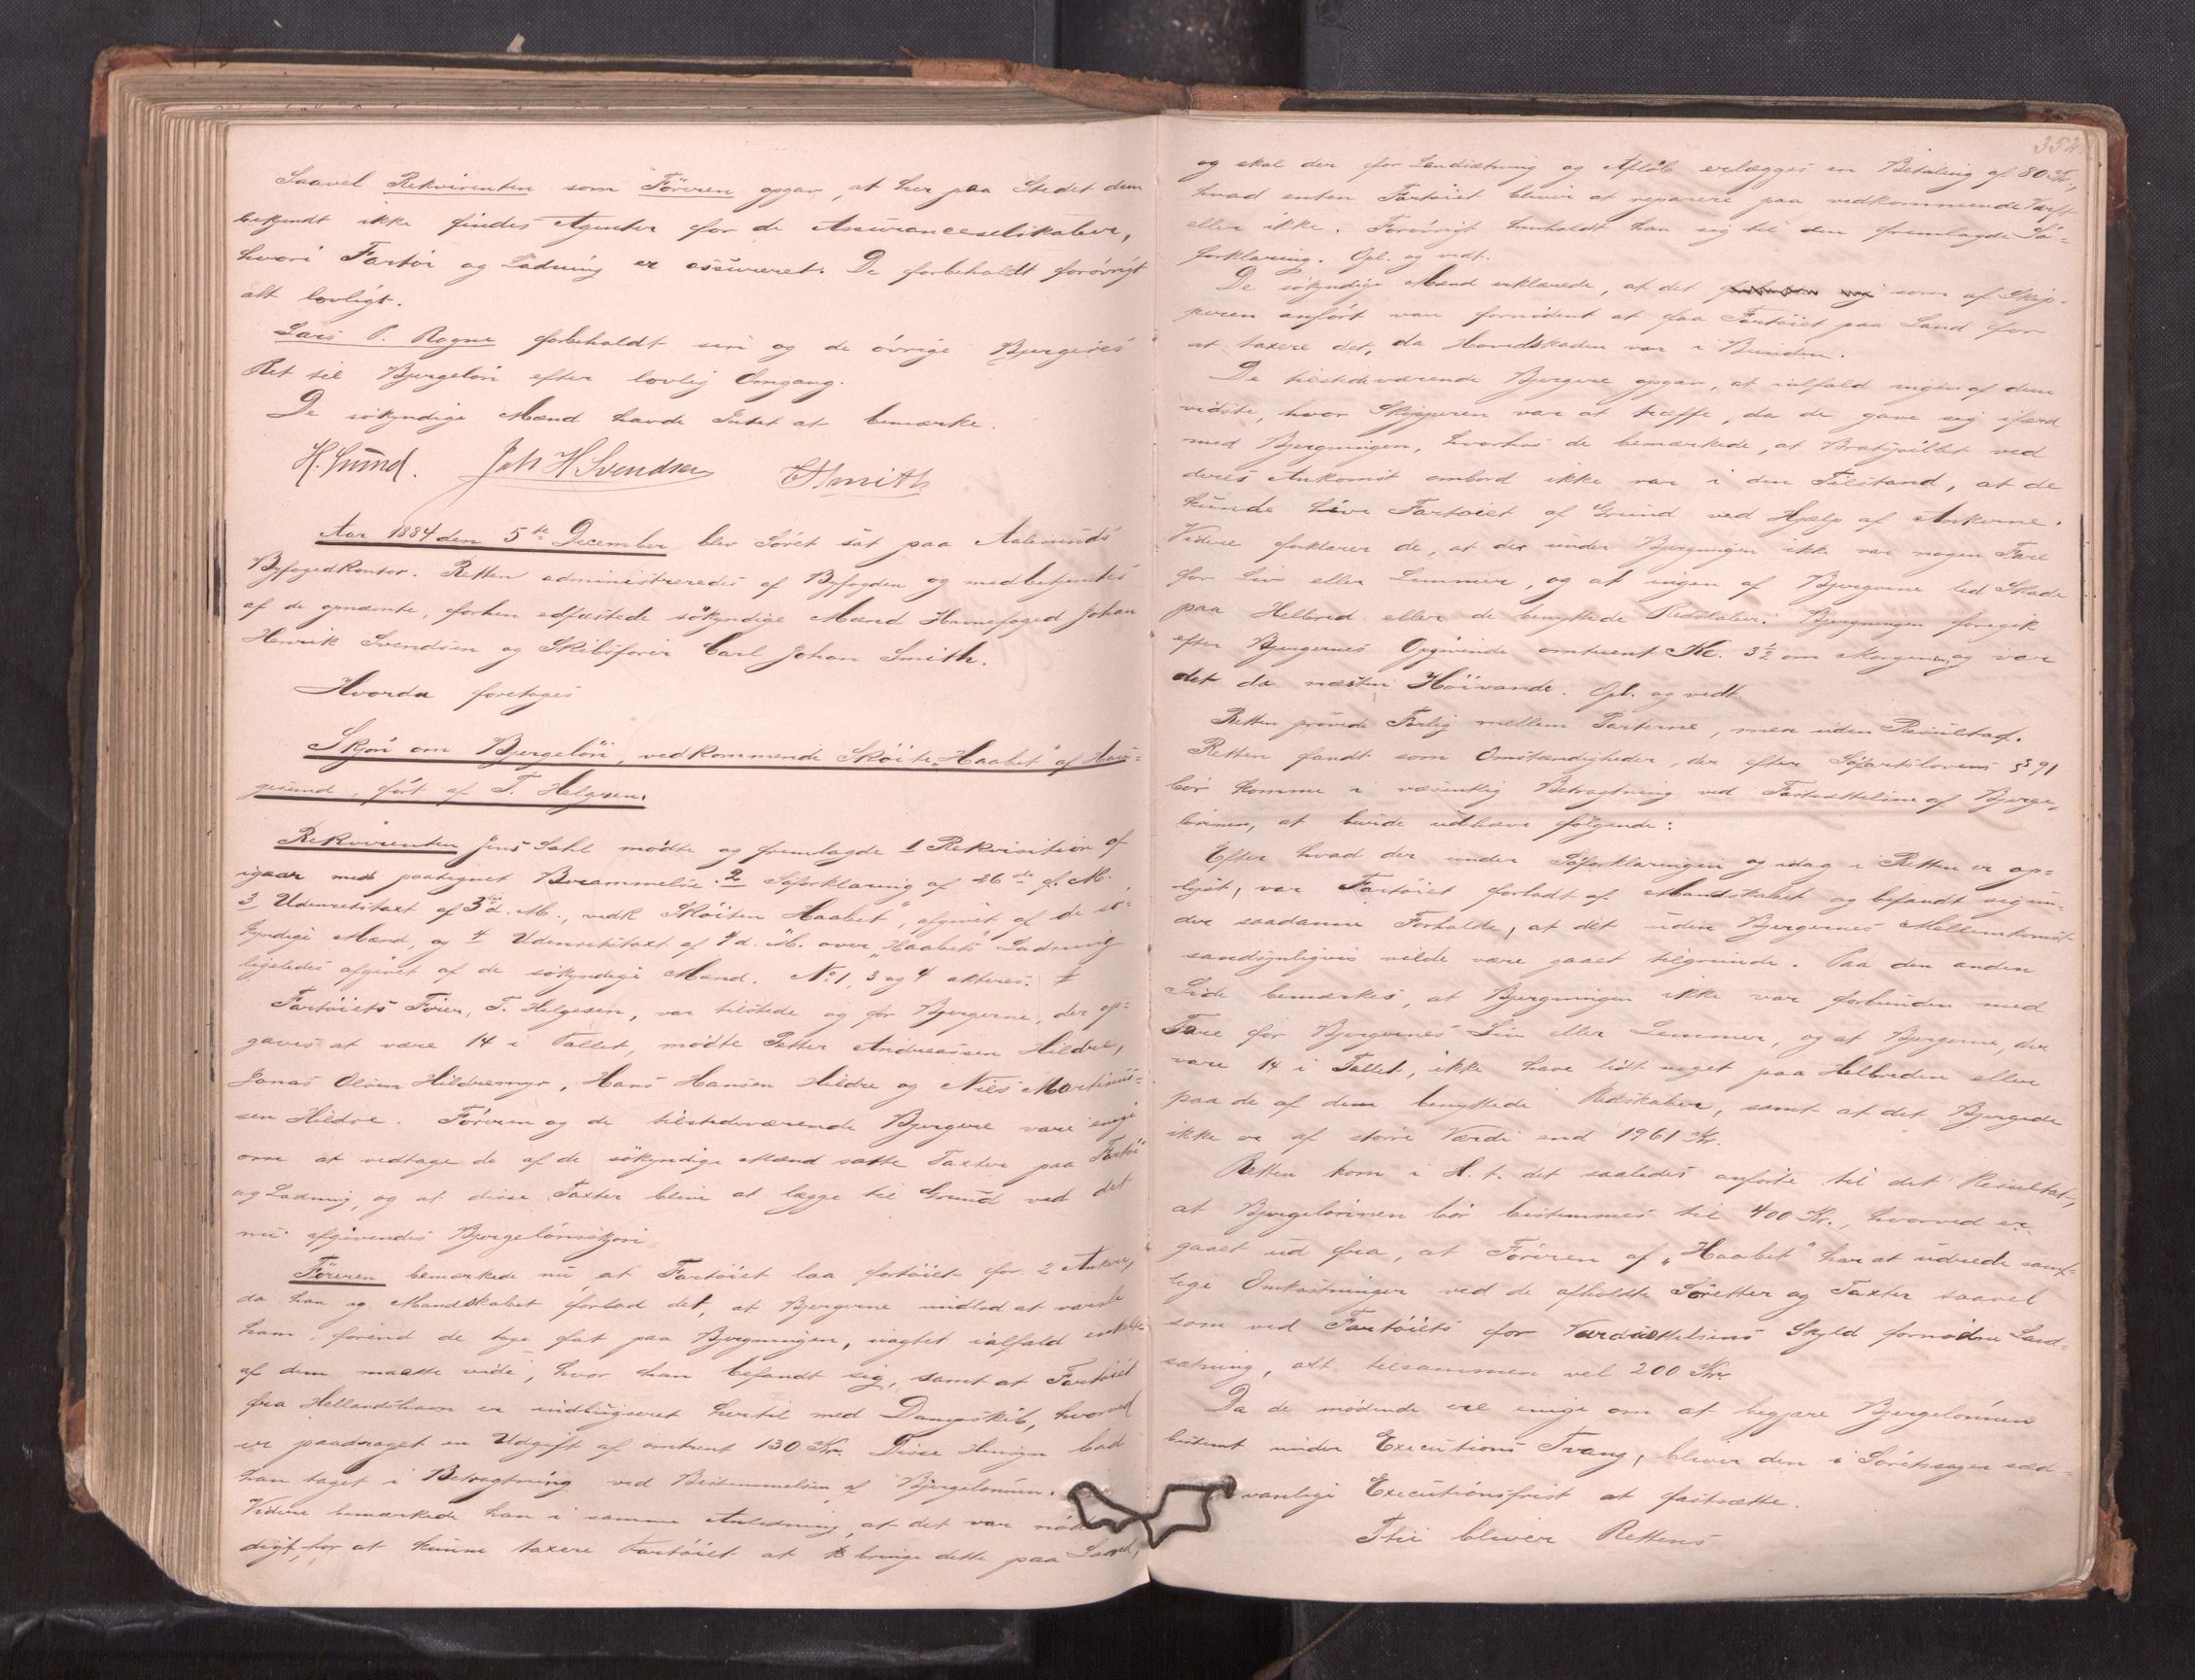 Saavel Rekvirenten som Föreren opgav, at her paa Stedet dem
bekjendt ikke findes Agenter for de Assuranceselskaber,
hvori Fartöi og Ladning er assureret. De forbeholdt forövrigt
alt lovligt.
Lars P. Rogne forbeholdt sin og de övrige Bjergeres
Ret til Bjergelön efter lovlig Omgang.
De sökyndige Mænd havde Intet at bemærke.
H. Sund. Joh H. Svendsen CJSmith
Aar 1884 den 5te December blev Söret sat paa Aalesunds
Byfogedkontor. Retten administreredes af Byfogden og medbetjentes
af de opnævnte, forhen edfæstede sökyndige Mænd Havnefoged Johan
Henrik Svendsen og Skibsförer Carl Johan Smith.
Hvorda foretoges
Skjön om Bjergelön, vedkommende Sköite "Haabet" af Hau-
gesund, fört af T. Helgesen.
Rekvirenten Jens Dahl mödte og fremlagde 1 Rekvisition af
igaar med paategnet Berammelse. 2 Söforklaring af 26de f. M.
3 Udenretstaxt af 3die d. M., vedk Sköiten "Haabet", afgivet af de sö-
kyndige Mænd, og 4 Udenretstaxt af 4 d. M. over "Haabets" Ladning
ligeledes afgivet af de sökyndige Mænd. No 1, 3 og 4 akteres. #
Fartöiets Förer, T. Helgesen, var tilstede og for Bjergerne, der op-
gaves at være 14 i Tallet, mödte Petter Andreassen Hildre,
Jonas Olsen Hildremyr, Hans Hansen Hildre og Nils Martinus-
sen Hildre. Föreren og de tilstedeværende Bjergere vare enige
om at vedtage de af de sökyndige Mænd satte Taxter paa Fartöi
og Ladning, og at disse Taxter blive at lægge til Grund ved det
nu afgivendes Bjergelönsskjön
Föreren bemærkede nu, at Fartöiet laa fortöiet for 2 Ankere,
da han og Mandskabet forlod det, at Bjergerne undlod at varsle
ham, förend de tage fat paa Bjergningen, uagtet ialfald enkelte
af dem maatte vide, hvor han befandt sig, samt at Fartöiet
fra Hellandshavn er indbugseret hertil med Dampskib, hvorved
er paadraget en Udgift af omtrent 130 Kr. Disse Hensyn bad
han taget i Betragtning ved Bestemmelsen af Bjergelönnen.
Videre bemærkede han i samme Anledning, at det var nöd-
digt, for at kunne taxere Fartöiet at bringe dette paa Land,
352
og skal der for Landsætning og Aflöb erlægges en Betaling af 80 Kr.,
hvad enten Fartöiet bliver at reparere paa vedkommende Værft
eller ikke. Forövrigt henholdt han sig til den fremlagde Sö-
forklaring. Opl. og vedt.
De sökyndige Mænd erklærede, at det som af Skip-
peren anfört var fornödent at faa Fartöiet paa Land for
at taxere det, da Hovedskaden var i Bunden.
De tilstedeværende Bjergere opgav, at ialfald ingen af dem
vidste, hvor Skipperen var at træffe, da de gave sig ifærd
med Bjergningen, hvorhos de bemærkede, at Bratspillet ved
deres Ankomst ombord ikke var i den Tilstand, at de
kunde hive Fartöiet af Grund ved Hjælp af Ankerne.
Videre forklarer de, at der under Bjergningen ikke var nogen Fare
for Liv eller Lemmer, og at ingen af Bjergerne led Skade
paa Helbred eller de benyttede Redskaber. Bjergningen foregik
efter Bjergernes Opgivende omtrent Kl. 3½ om Morgenen, og var
det da næsten Höivande. Opl. og vedt.
Retten prövede Forlig mellem Parterne, men uden Resultat.
Retten fandt som Omstændigheder, der efter Söfartslovens § 91
bör komme i væsentlig Betragtning ved Fastsættelsen af Bjerge-
lönnen, at burde udhæve fölgende:
Efter hvad der under Söforklaringen og idag i Retten er op-
lyst, var Fartöiet forladt af Mandskabet og befandt sig un-
der saadanne Forholde, at det uden Bjergernes Mellemkomst
sandsynligvis vilde være gaaet tilgrunde. Paa den anden
Side bemærkes, at Bjergningen ikke var forbunden med
Fare for Bjergernes Liv eller Lemmer, og at Bjergerne, der
vare 14 i Tallet, ikke have lidt noget paa Helbreden eller
paa de af dem benyttede Redskaber, samt at det Bjergede
ikke er af större Værdi end 1961 Kr.
Retten kom i H. t. det saaledes anförte til det Resultat,
at Bjergelönnen bör bestemmes til 400 Kr., hvorved er
gaaet ud fra, at Föreren af "Haabet" har at udrede samt-
lige Omkostninger ved de afholdte Söretter og Taxter saavel
som ved Fartöiets for Værdsættelsens Skyld fornödne Land-
sætning, alt tilsammen vel 200 Kr.
Da de mödende ere enige om at begjære Bjergelönnen
bestemt under Executions Tvang, bliver den i Söretssager sæd-
vanlige Executionsfrist at fastsætte.
Thi bliver Rettens